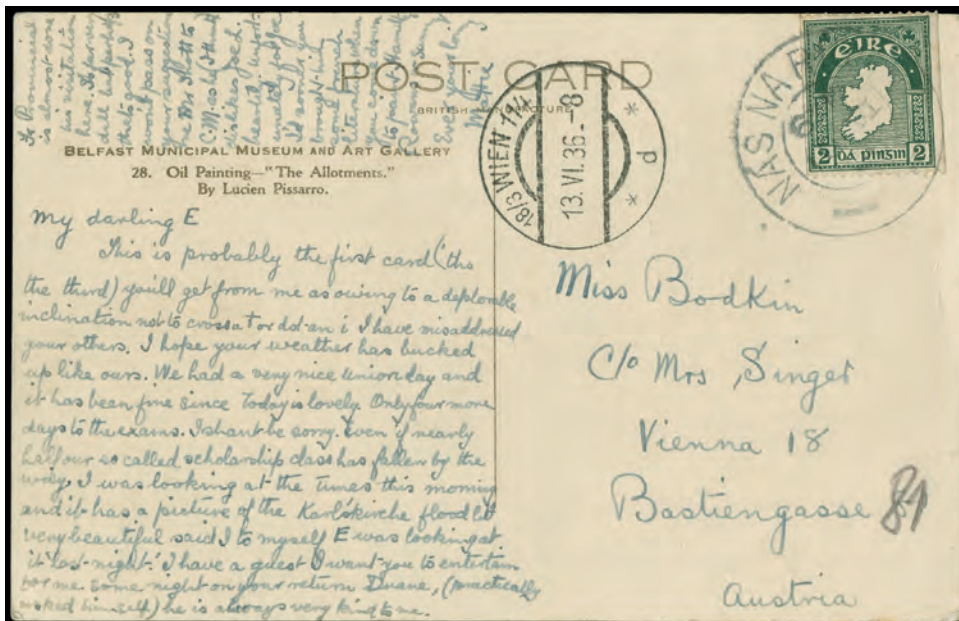 POST CARD
BRITISH MANUFACTURE
BELFAST MUNICIPAL MUSEUM AND ART GALLERY
28. Oil Painting—"The Allotments."
By Lucien Pissarro.
My darling E
This is probably the first card (tho
the third) you'll get from me as owing to a deplorable
inclination not to cross a T or dot an i I have misaddressed
your others. I hope your weather has bucked
up like ours. We had a very nice Union day and
it has been fine since Today is lovely. Only four more
days to the exams. I shant be sorry. Even if nearly
half our so called scholarship class has fallen by the
way. I was looking at the Times this morning
and it has a picture of the Karlskirche flood lit
very beautiful said I to myself E was looking at
it last night. I have a guest I want you to entertain
for me some night on your return Duane, (practically
asked himself) he is always very kind to me.
The Provincial
is almost done
his visitation
here.
you come down
Ever your loving
18/3 WIEN 114
13.VI.36.-8
* P *
NÁS NA R
ÉIRE
2 DÁ PINGIN 2
Miss Bodkin
C/o Mrs Singer
Vienna 18
Bastiengasse 81
Austria